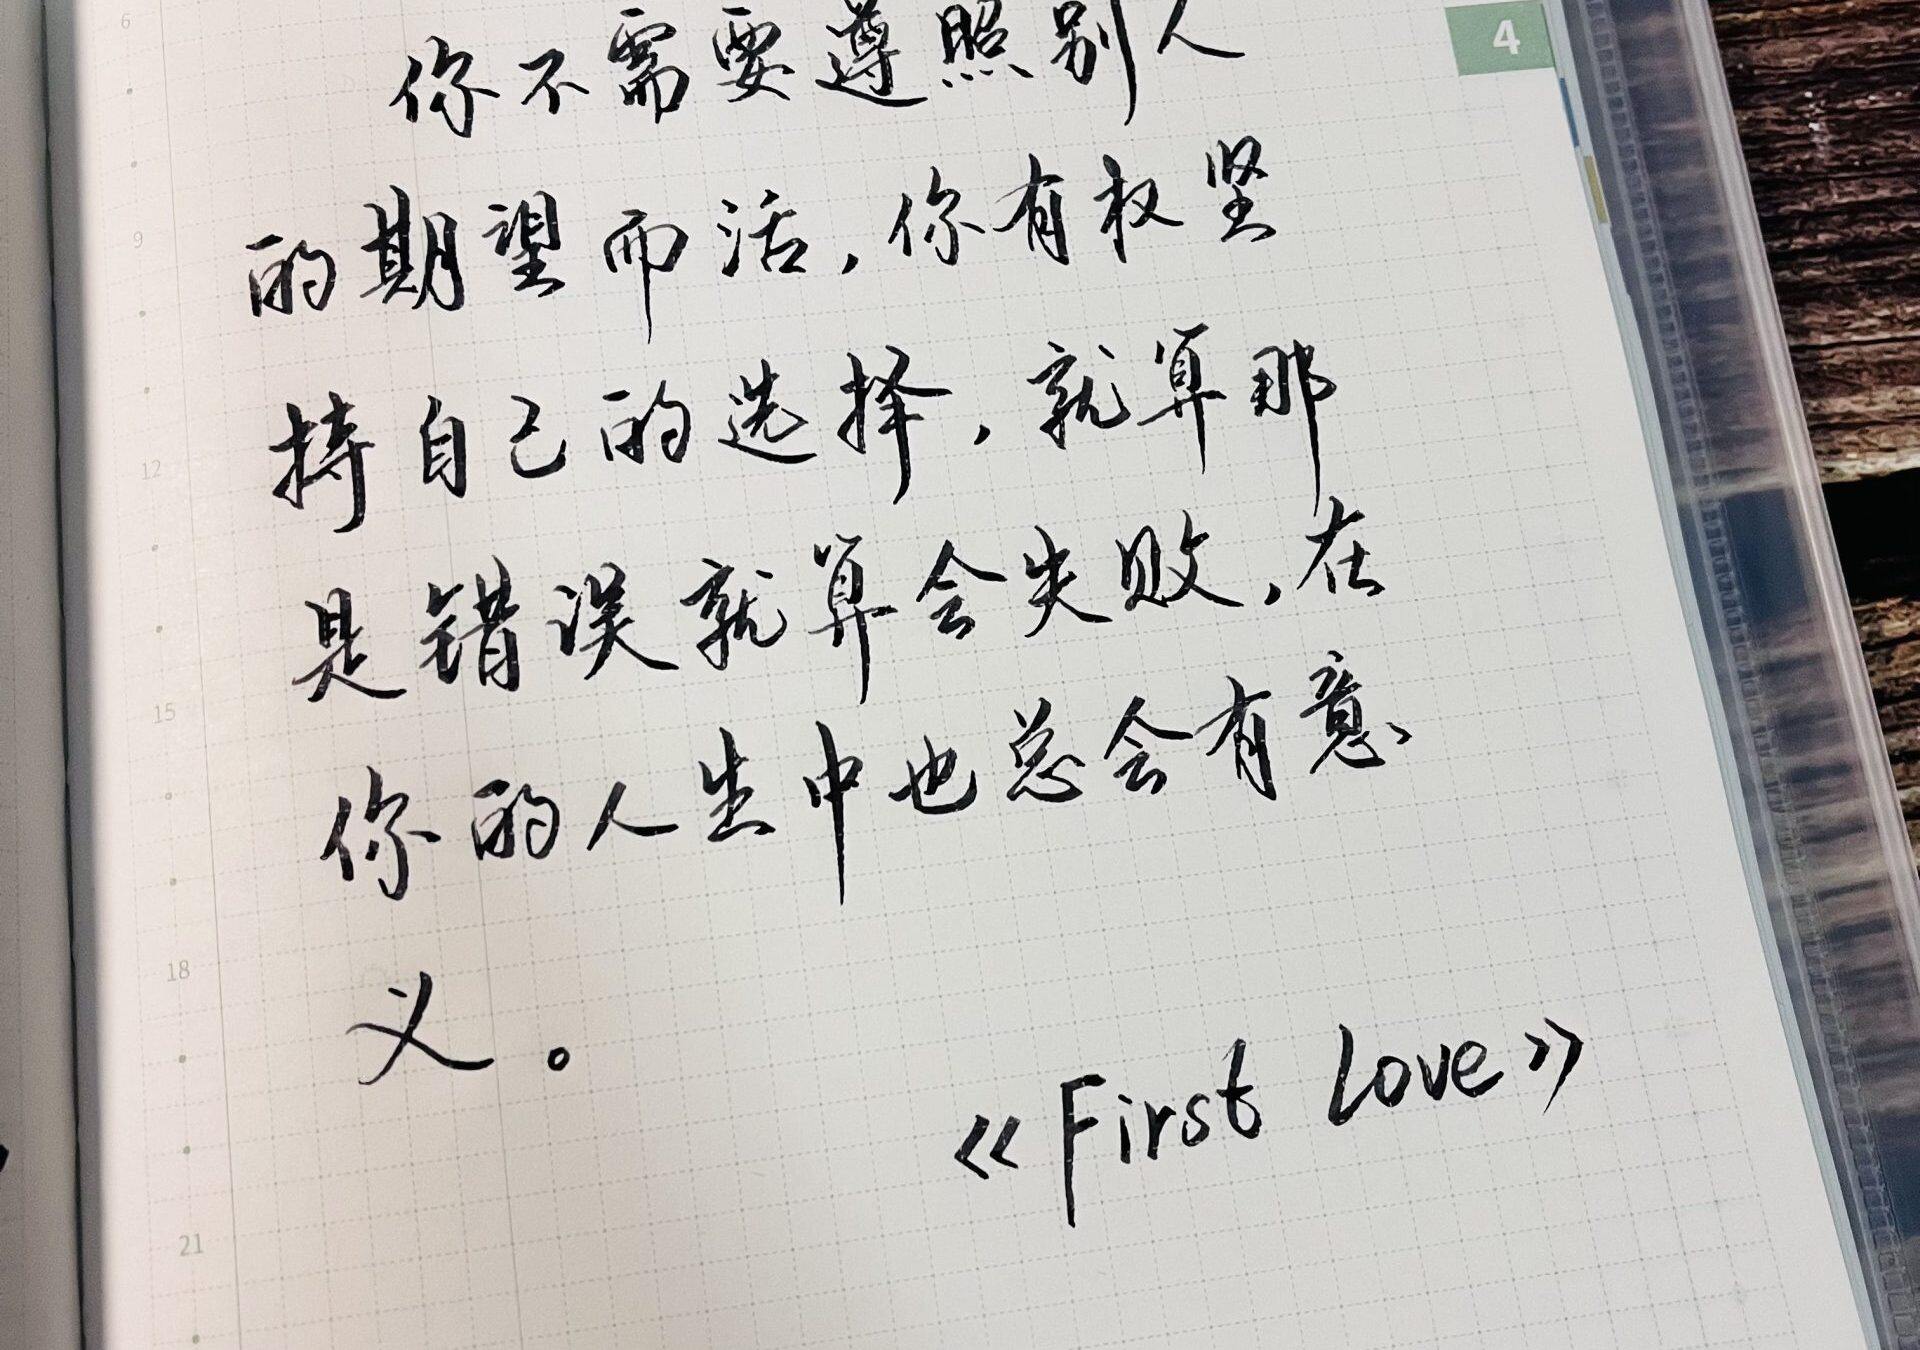 4
6
你不需要遵照别人
的期望而活,你有权坚
9
持自己的选择,就算那
12
是错误就算会失败,在
15
你的人生中也总会有意
18
义。
《First Love》
21